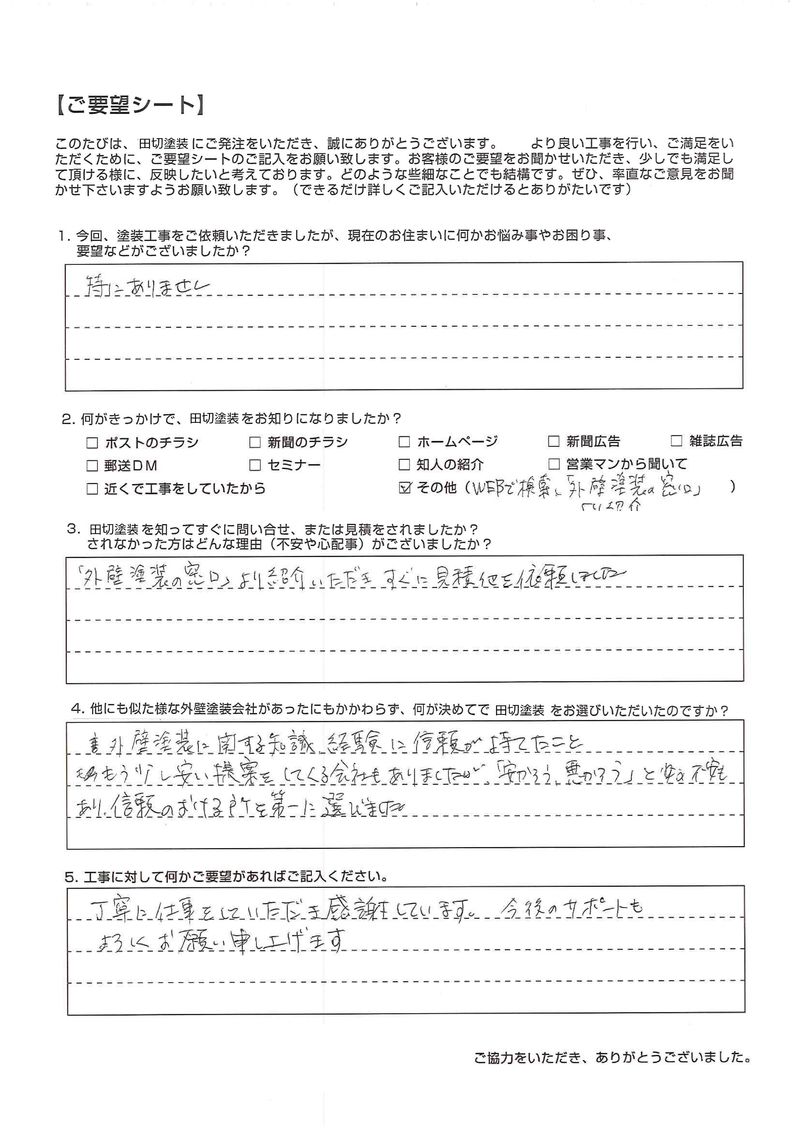 【ご要望シート】
このたびは、田切塗装にご発注をいただき、誠にありがとうございます。 より良い工事を行い、ご満足をい
ただくために、ご要望シートのご記入をお願い致します。お客様のご要望をお聞かせいただき、少しでも満足し
て頂ける様に、反映したいと考えております。どのような些細なことでも結構です。ぜひ、率直なご意見をお聞
かせ下さいますようお願い致します。（できるだけ詳しくご記入いただけるとありがたいです）
1. 今回、塗装工事をご依頼いただきましたが、現在のお住まいに何かお悩み事やお困り事、
要望などがございましたか？
特にありません
2. 何がきっかけで、田切塗装をお知りになりましたか？
□ ポストのチラシ □ 新聞のチラシ □ ホームページ □ 新聞広告 □ 雑誌広告
□ 郵送DM □ セミナー □ 知人の紹介 □ 営業マンから聞いて
□ 近くで工事をしていたから ☑ その他（WEBで検索し「外壁塗装の窓口」 ）
より紹介
3. 田切塗装を知ってすぐに問い合せ、または見積をされましたか？
されなかった方はどんな理由（不安や心配事）がございましたか？
「外壁塗装の窓口」より紹介いただき すぐに見積他を依頼しました
4. 他にも似た様な外壁塗装会社があったにもかかわらず、何が決めてで 田切塗装 をお選びいただいたのですか？
外壁塗装に関する知識、経験に信頼が持てたこと
もう少し安い提案をしてくる会社もありましたが、「安かろう、悪かろう」と 不安
あり、信頼のおける所を第一に選びました
5. 工事に対して何かご要望があればご記入ください。
丁寧に仕事をしていただき感謝しています。今後のサポートも
よろしくお願い申し上げます
ご協力をいただき、ありがとうございました。